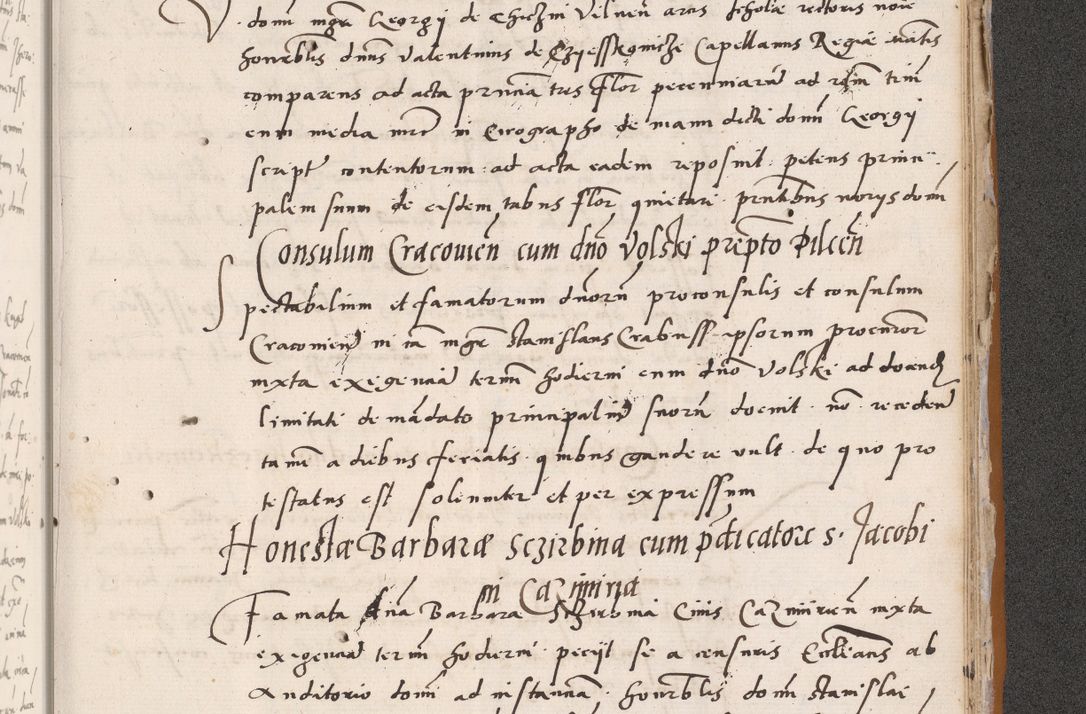 V. domini mgri Georgij de Chiczin Vilnen arcis scholae rectoris noie
honorblis dnus Valentinus de Czyesskowicze Capellanus Regiae matis
comparens ad acta prnciam tres Flor pecenniarum ad rom trium
cum media mrc in Cirographo de manu dicti domi Georgij
script contentorum ad acta eadem reposuit petens princi
palem suum de eisdem tribus flor quietari prntibus norijs domi
Consulum Cracovien cum dno Volski prepto Pilcen
Spectabilium et famatorum dnorum proconsulis et consulum
Cracovien in ca mgr Stanislaus Crabuss ipsorum procuror
iuxta exigenciam termi hodierni cum dno Volski ad docend
limitati de mandato principalium suorum docuit no recedend
tamen a diebus feriatis quibus gaudere vult de quo pro
testatus est solenniter et per expressum
Honestae Barbarae Sczirbina cum pdicatore s. Jacobi
in Cazimiria
Famata dna Barbara Sczirbina Civis Cazimirien iuxta
exigenciam termi hodierni peciit se a censuris Ecclesiasticis ab
Auditorio domi ad instanciam honorblis domi Stanislai